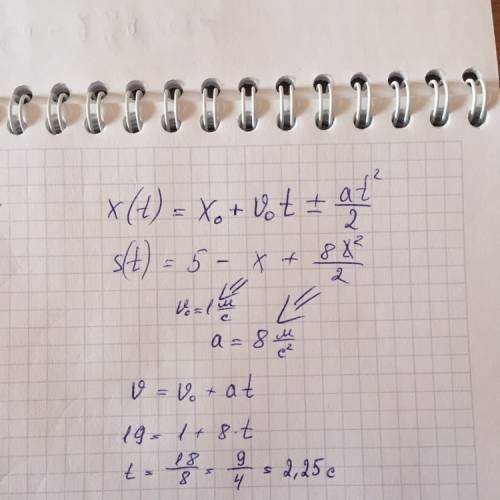 x(t) = x₀ + v₀t ± at²/2
s(t) = 5 - x + 8x²/2
v₀ = 1 м/с
a = 8 м/с²
v = v₀ + at
19 = 1 + 8·t
t = 18/8 = 9/4 = 2,25 с